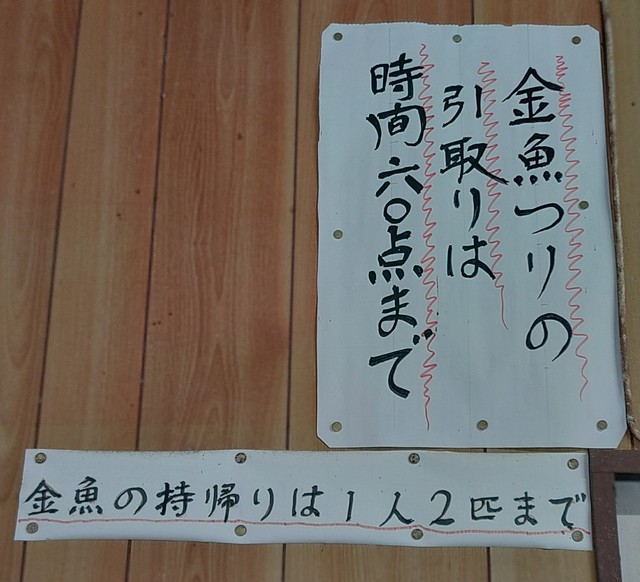 金魚つりの
引取りは
時间六〇点まで
金魚の持帰りは1人2匹まで